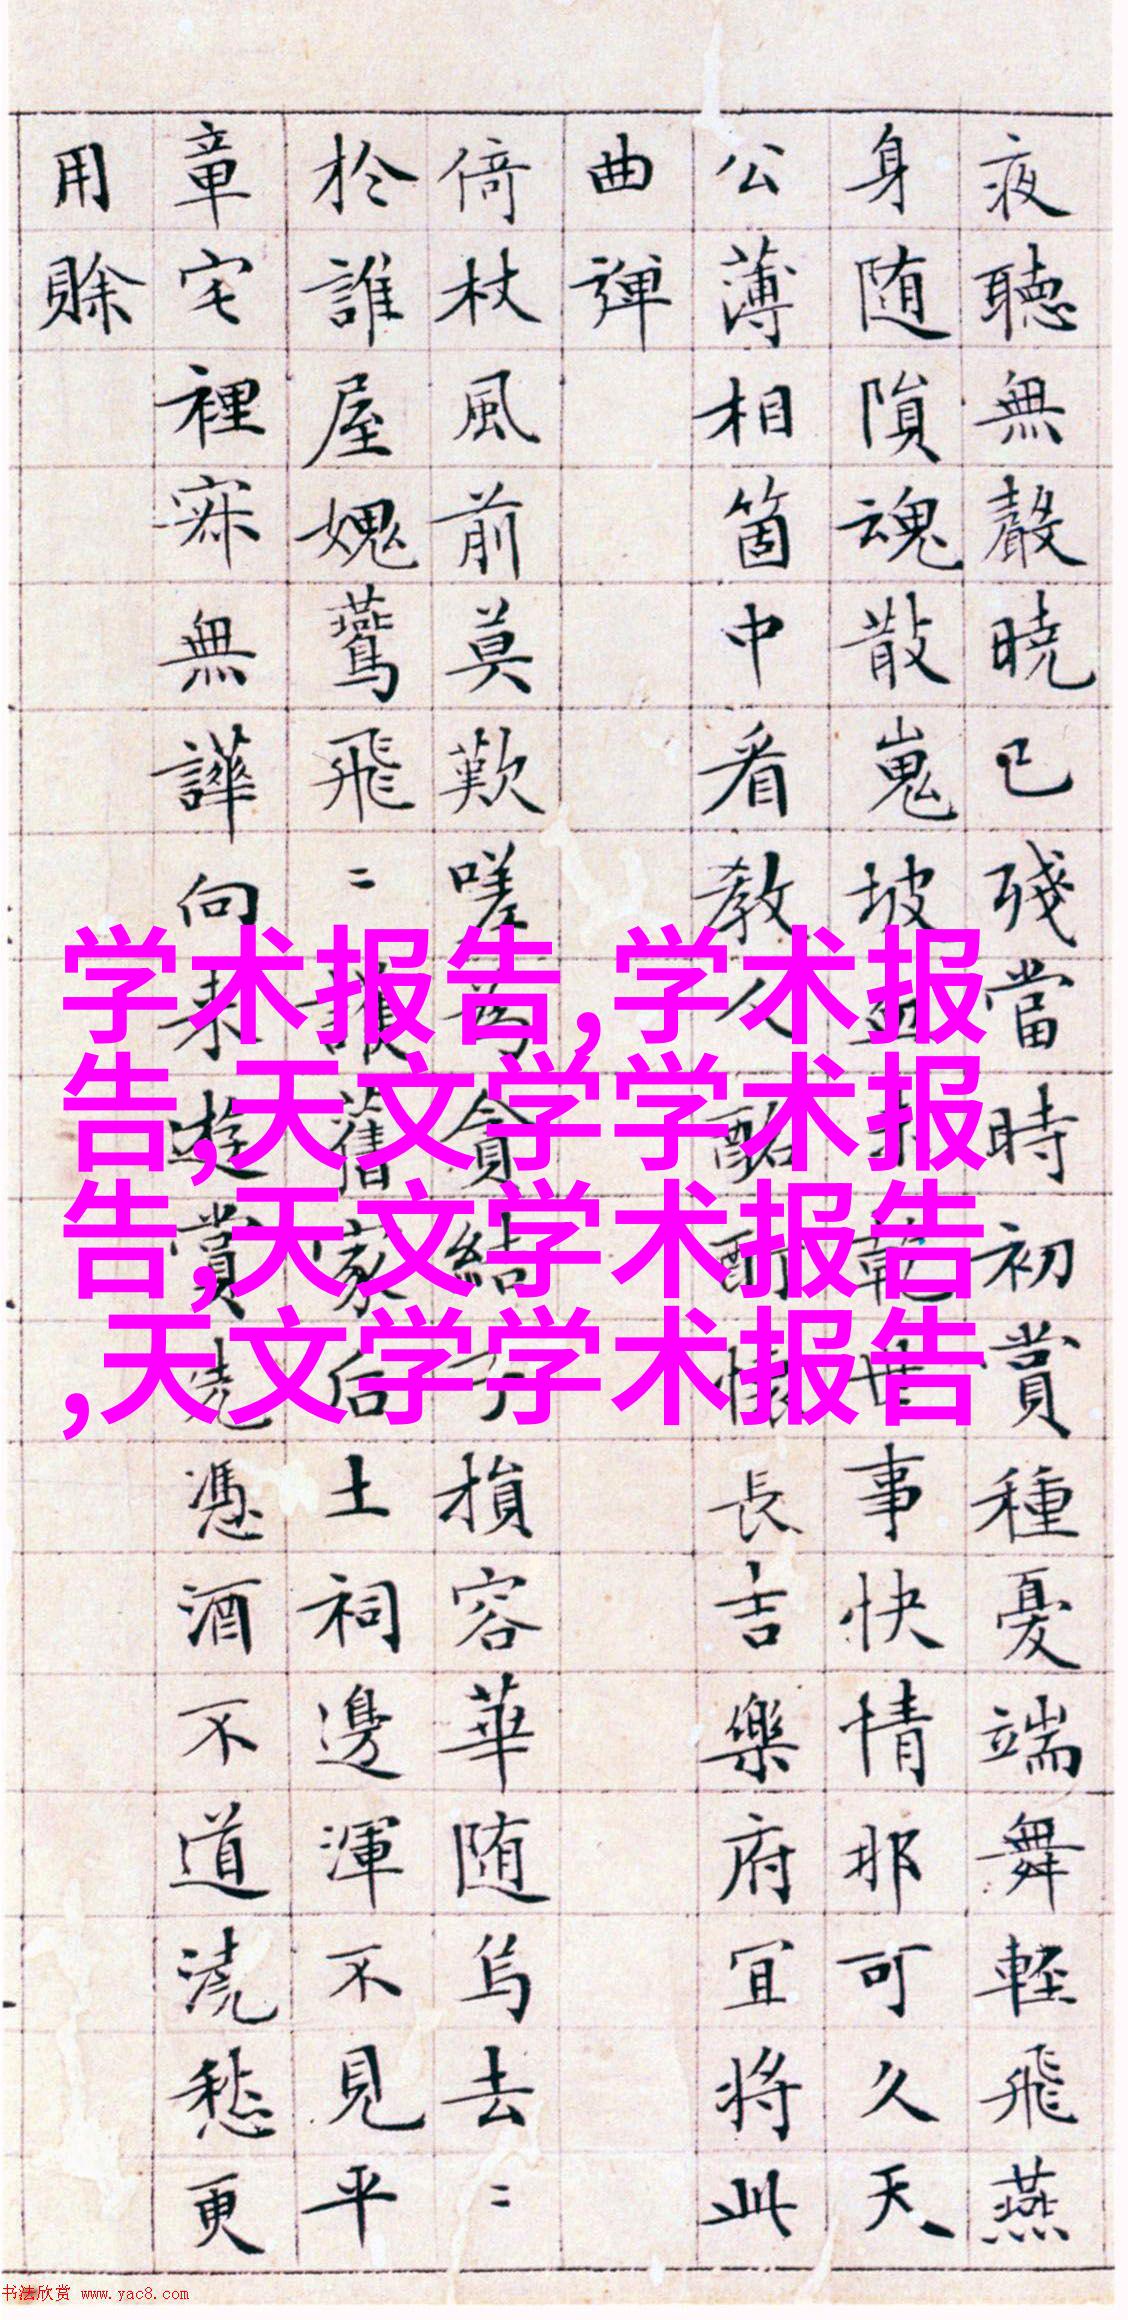 夜聽無聲曉已殘當時初賞種憂端舞輕飛燕
身随隕魂散嵬坡事快情那可久天
公薄相箇中看教人長吉樂府宜将此
曲彈
倚杖風前莫歎嗟貪結子損容華随烏去〻
於誰屋媿鷰飛〻誰舊家后土祠邊渾不見平
章宅裡寂無譁向来遊賞先憑酒不道澆愁更
用賖
学术报告,学术报
告,天文学学术报
告,天文学术报告
,天文学学术报告
书法欣赏 www.yac8.com